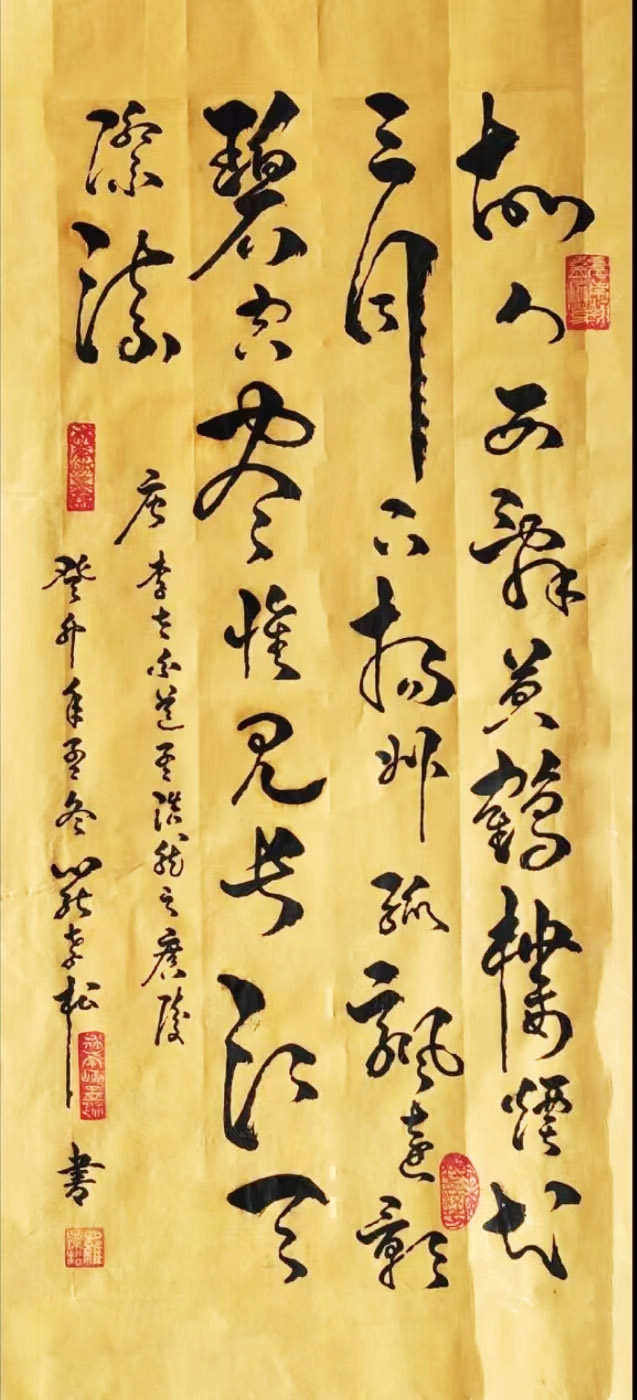 故人西辭黄鶴樓煙花
三月下揚州孤颿遠影
碧空盡惟見長江天
際流
唐李太白送孟浩然之廣陵
癸卯年孟冬羅松書